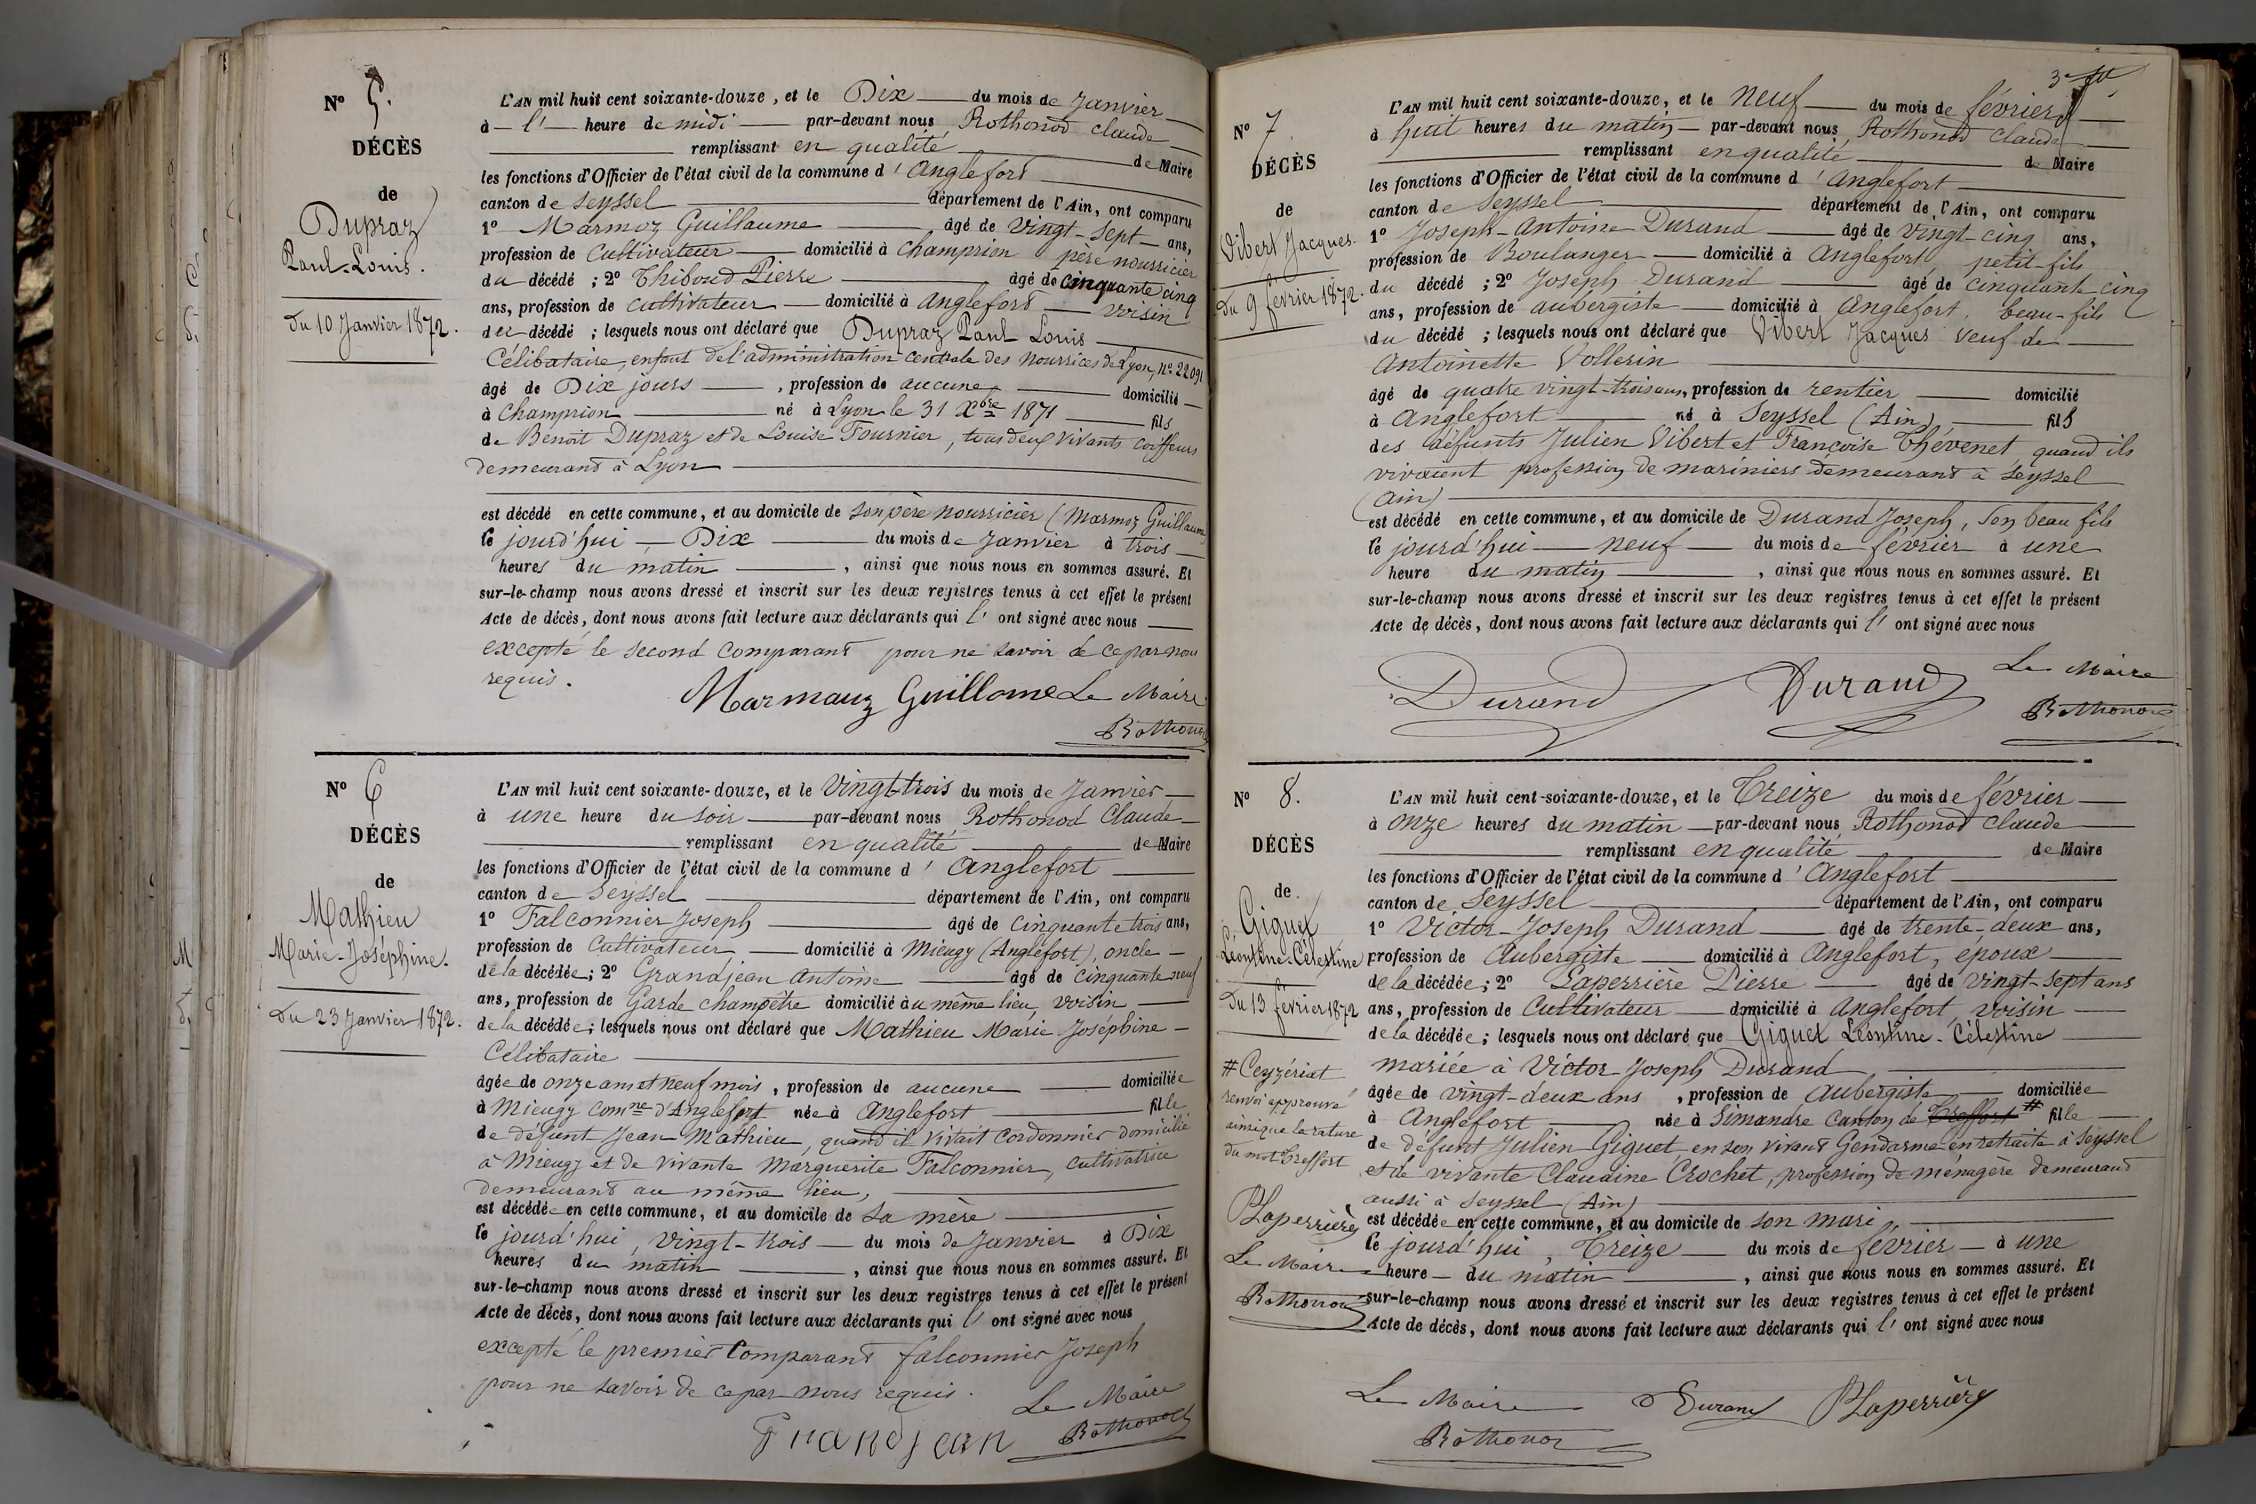 N° 5.
DÉCÈS
de
Dupraz
Paul-Louis.
du 10 Janvier 1872.
L'AN mil huit cent soixante-douze, et le Dix du mois de Janvier
à l' heure de midi par-devant nous Rothonod Claude
remplissant en qualité de Maire
les fonctions d'Officier de l'état civil de la commune d'Anglefort
canton de Seyssel département de l'Ain, ont comparu
1° Marmoz Guillaume âgé de vingt-sept ans,
profession de Cultivateur domicilié à Champrion père nourricier
du décédé ; 2° Thiboud Pierre âgé de cinquante cinq
ans, profession de cultivateur domicilié à Anglefort voisin
du décédé ; lesquels nous ont déclaré que Dupraz Paul Louis
Célibataire, enfant de l'administration centrale des nourrices de Lyon, n° 22091
âgé de Dix jours, profession de aucune domicilié
à Champrion né à Lyon le 31 Xbre 1871 fils
de Benoit Dupraz et de Louise Fournier, tous deux vivants coiffeurs
demeurant à Lyon
est décédé en cette commune, et au domicile de son père nourricier (Marmoz Guillaume)
le jourd'hui Dix du mois de Janvier à trois
heures du matin, ainsi que nous nous en sommes assuré. Et
sur-le-champ nous avons dressé et inscrit sur les deux registres tenus à cet effet le présent
Acte de décès, dont nous avons fait lecture aux déclarants qui l' ont signé avec nous
excepté le second comparant pour ne savoir de ce par nous
requis.
Marmauz Guillome Le Maire
Rothonod
N° 6
DÉCÈS
de
Mathieu
Marie-Joséphine.
du 23 Janvier 1872.
L'AN mil huit cent soixante-douze, et le Vingt-trois du mois de Janvier
à une heure du soir par-devant nous Rothonod Claude
remplissant en qualité de Maire
les fonctions d'Officier de l'état civil de la commune d'Anglefort
canton de Seyssel département de l'Ain, ont comparu
1° Falconnier Joseph âgé de Cinquante trois ans,
profession de Cultivateur domicilié à Mieugy (Anglefort), oncle
de la décédée ; 2° Grandjean Antoine âgé de cinquante neuf
ans, profession de Garde champêtre domicilié au même lieu, voisin
de la décédée ; lesquels nous ont déclaré que Mathieu Marie Joséphine
Célibataire
âgée de onze ans et neuf mois, profession de aucune domiciliée
à Mieugy Comne d'Anglefort née à Anglefort fille
de défunt Jean Mathieu, quand il vivait Cordonnier domicilié
à Mieugy et de vivante Marguerite Falconnier, cultivatrice
demeurant au même lieu,
est décédée en cette commune, et au domicile de sa mère
le jourd'hui, vingt-trois du mois de Janvier à Dix
heures du matin, ainsi que nous nous en sommes assuré. Et
sur-le-champ nous avons dressé et inscrit sur les deux registres tenus à cet effet le présent
Acte de décès, dont nous avons fait lecture aux déclarants qui l' ont signé avec nous
excepté le premier Comparant falconnier Joseph
pour ne savoir de ce par nous requis.
Le Maire
Grandjean Rothonod
3e
N° 7
DÉCÈS
de
Vibert Jacques.
du 9 février 1872.
L'AN mil huit cent soixante-douze, et le Neuf du mois de février
à huit heures du matin par-devant nous Rothonod Claude
remplissant en qualité de Maire
les fonctions d'Officier de l'état civil de la commune d'Anglefort
canton de Seyssel département de l'Ain, ont comparu
1° Joseph-Antoine Durand âgé de vingt-cinq ans,
profession de Boulanger domicilié à Anglefort petit-fils
du décédé ; 2° Joseph Durand âgé de cinquante cinq
ans, profession de aubergiste domicilié à Anglefort, beau-fils
du décédé ; lesquels nous ont déclaré que Vibert Jacques veuf de
Antoinette Vollerin
âgé de quatre vingt-trois ans, profession de rentier domicilié
à Anglefort né à Seyssel (Ain) fils
des défunts Julien Vibert et Françoise Thévenet quand ils
vivaient profession de mariniers demeurant à Seyssel
(Ain)
est décédé en cette commune, et au domicile de Durand Joseph, son beau fils
le jourd'hui neuf du mois de février à une
heure du matin, ainsi que nous nous en sommes assuré. Et
sur-le-champ nous avons dressé et inscrit sur les deux registres tenus à cet effet le présent
Acte de décès, dont nous avons fait lecture aux déclarants qui l' ont signé avec nous
Le Maire
Durand Durand Rothonod
N° 8.
DÉCÈS
de
Giguet
Léontine-Célestine
du 13 février 1872
# Ceyzériat
renvoi approuvé
ainsi que la rature
du mot Treffort
PLaperrière
Le Maire
Rothonod
L'AN mil huit cent-soixante-douze, et le Treize du mois de février
à onze heures du matin par-devant nous Rothonod Claude
remplissant en qualité de Maire
les fonctions d'Officier de l'état civil de la commune d'Anglefort
canton de Seyssel département de l'Ain, ont comparu
1° Victor-Joseph Durand âgé de trente-deux ans,
profession de Aubergiste domicilié à Anglefort, époux
de la décédée ; 2° Laperrière Pierre âgé de vingt-sept ans
ans, profession de Cultivateur domicilié à Anglefort, voisin
de la décédée ; lesquels nous ont déclaré que Giguet Léontine-Célestine
mariée à Victor Joseph Durand
âgée de vingt-deux ans, profession de Aubergiste domiciliée
à Anglefort née à Simandre Canton de Treffort # fille
de défunt Julien Giguet en son vivant Gendarme en retraite à Seyssel
et de vivante Claudine Crochet, profession de ménagère demeurant
aussi à Seyssel (Ain)
est décédée en cette commune, et au domicile de son mari
le jourd'hui, Treize du mois de février à une
heure du matin, ainsi que nous nous en sommes assuré. Et
sur-le-champ nous avons dressé et inscrit sur les deux registres tenus à cet effet le présent
Acte de décès, dont nous avons fait lecture aux déclarants qui l' ont signé avec nous
Le Maire Durand PLaperrière
Rothonod